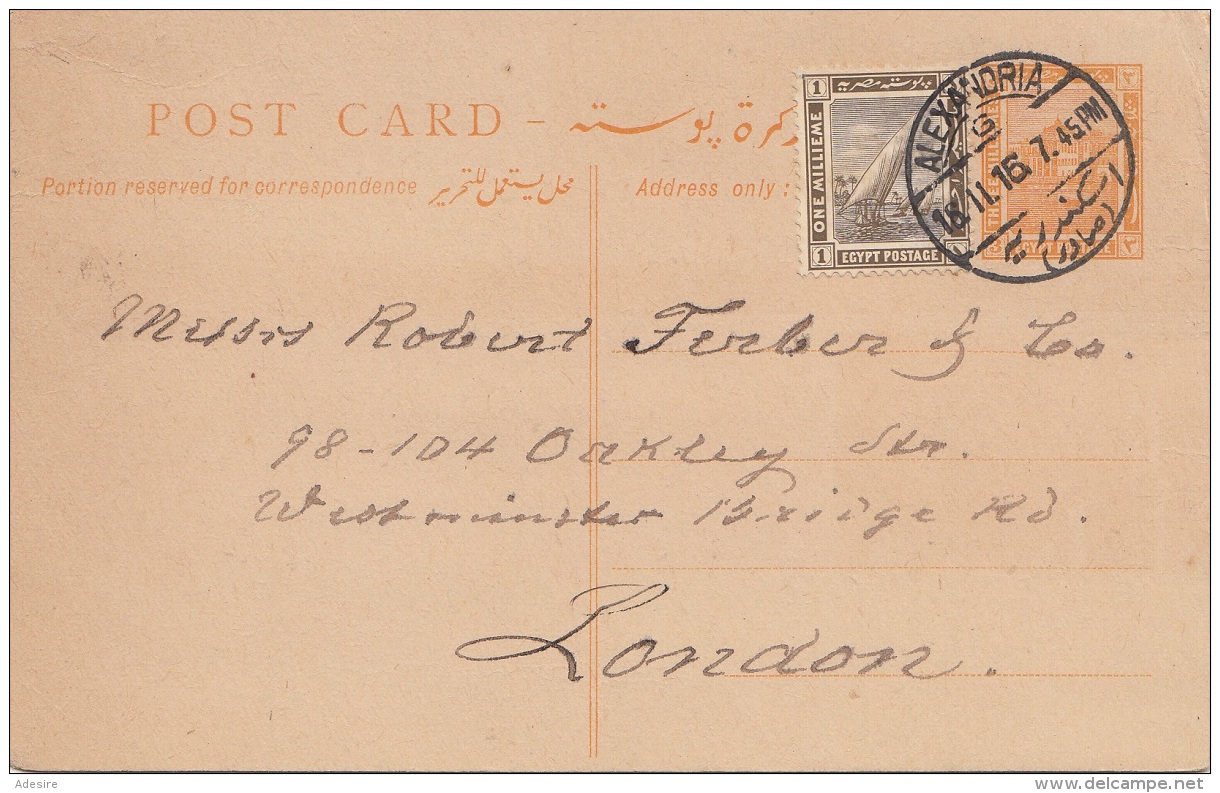 POST CARD - تذكرة پوسته
Portion reserved for correspondence محل يستعمل للتحرير
Address only:
1 پوسته مصريه
ONE MILLIEME
1 EGYPT POSTAGE
ALEXANDRIA
18.11.16 7.45PM
اسكندرية
EGYPT POSTAGE
Messrs Robert Ferber & Co.
98-104 Oakley Str.
Westminster Bridge Rd.
London.
Adesire
www.delcampe.net